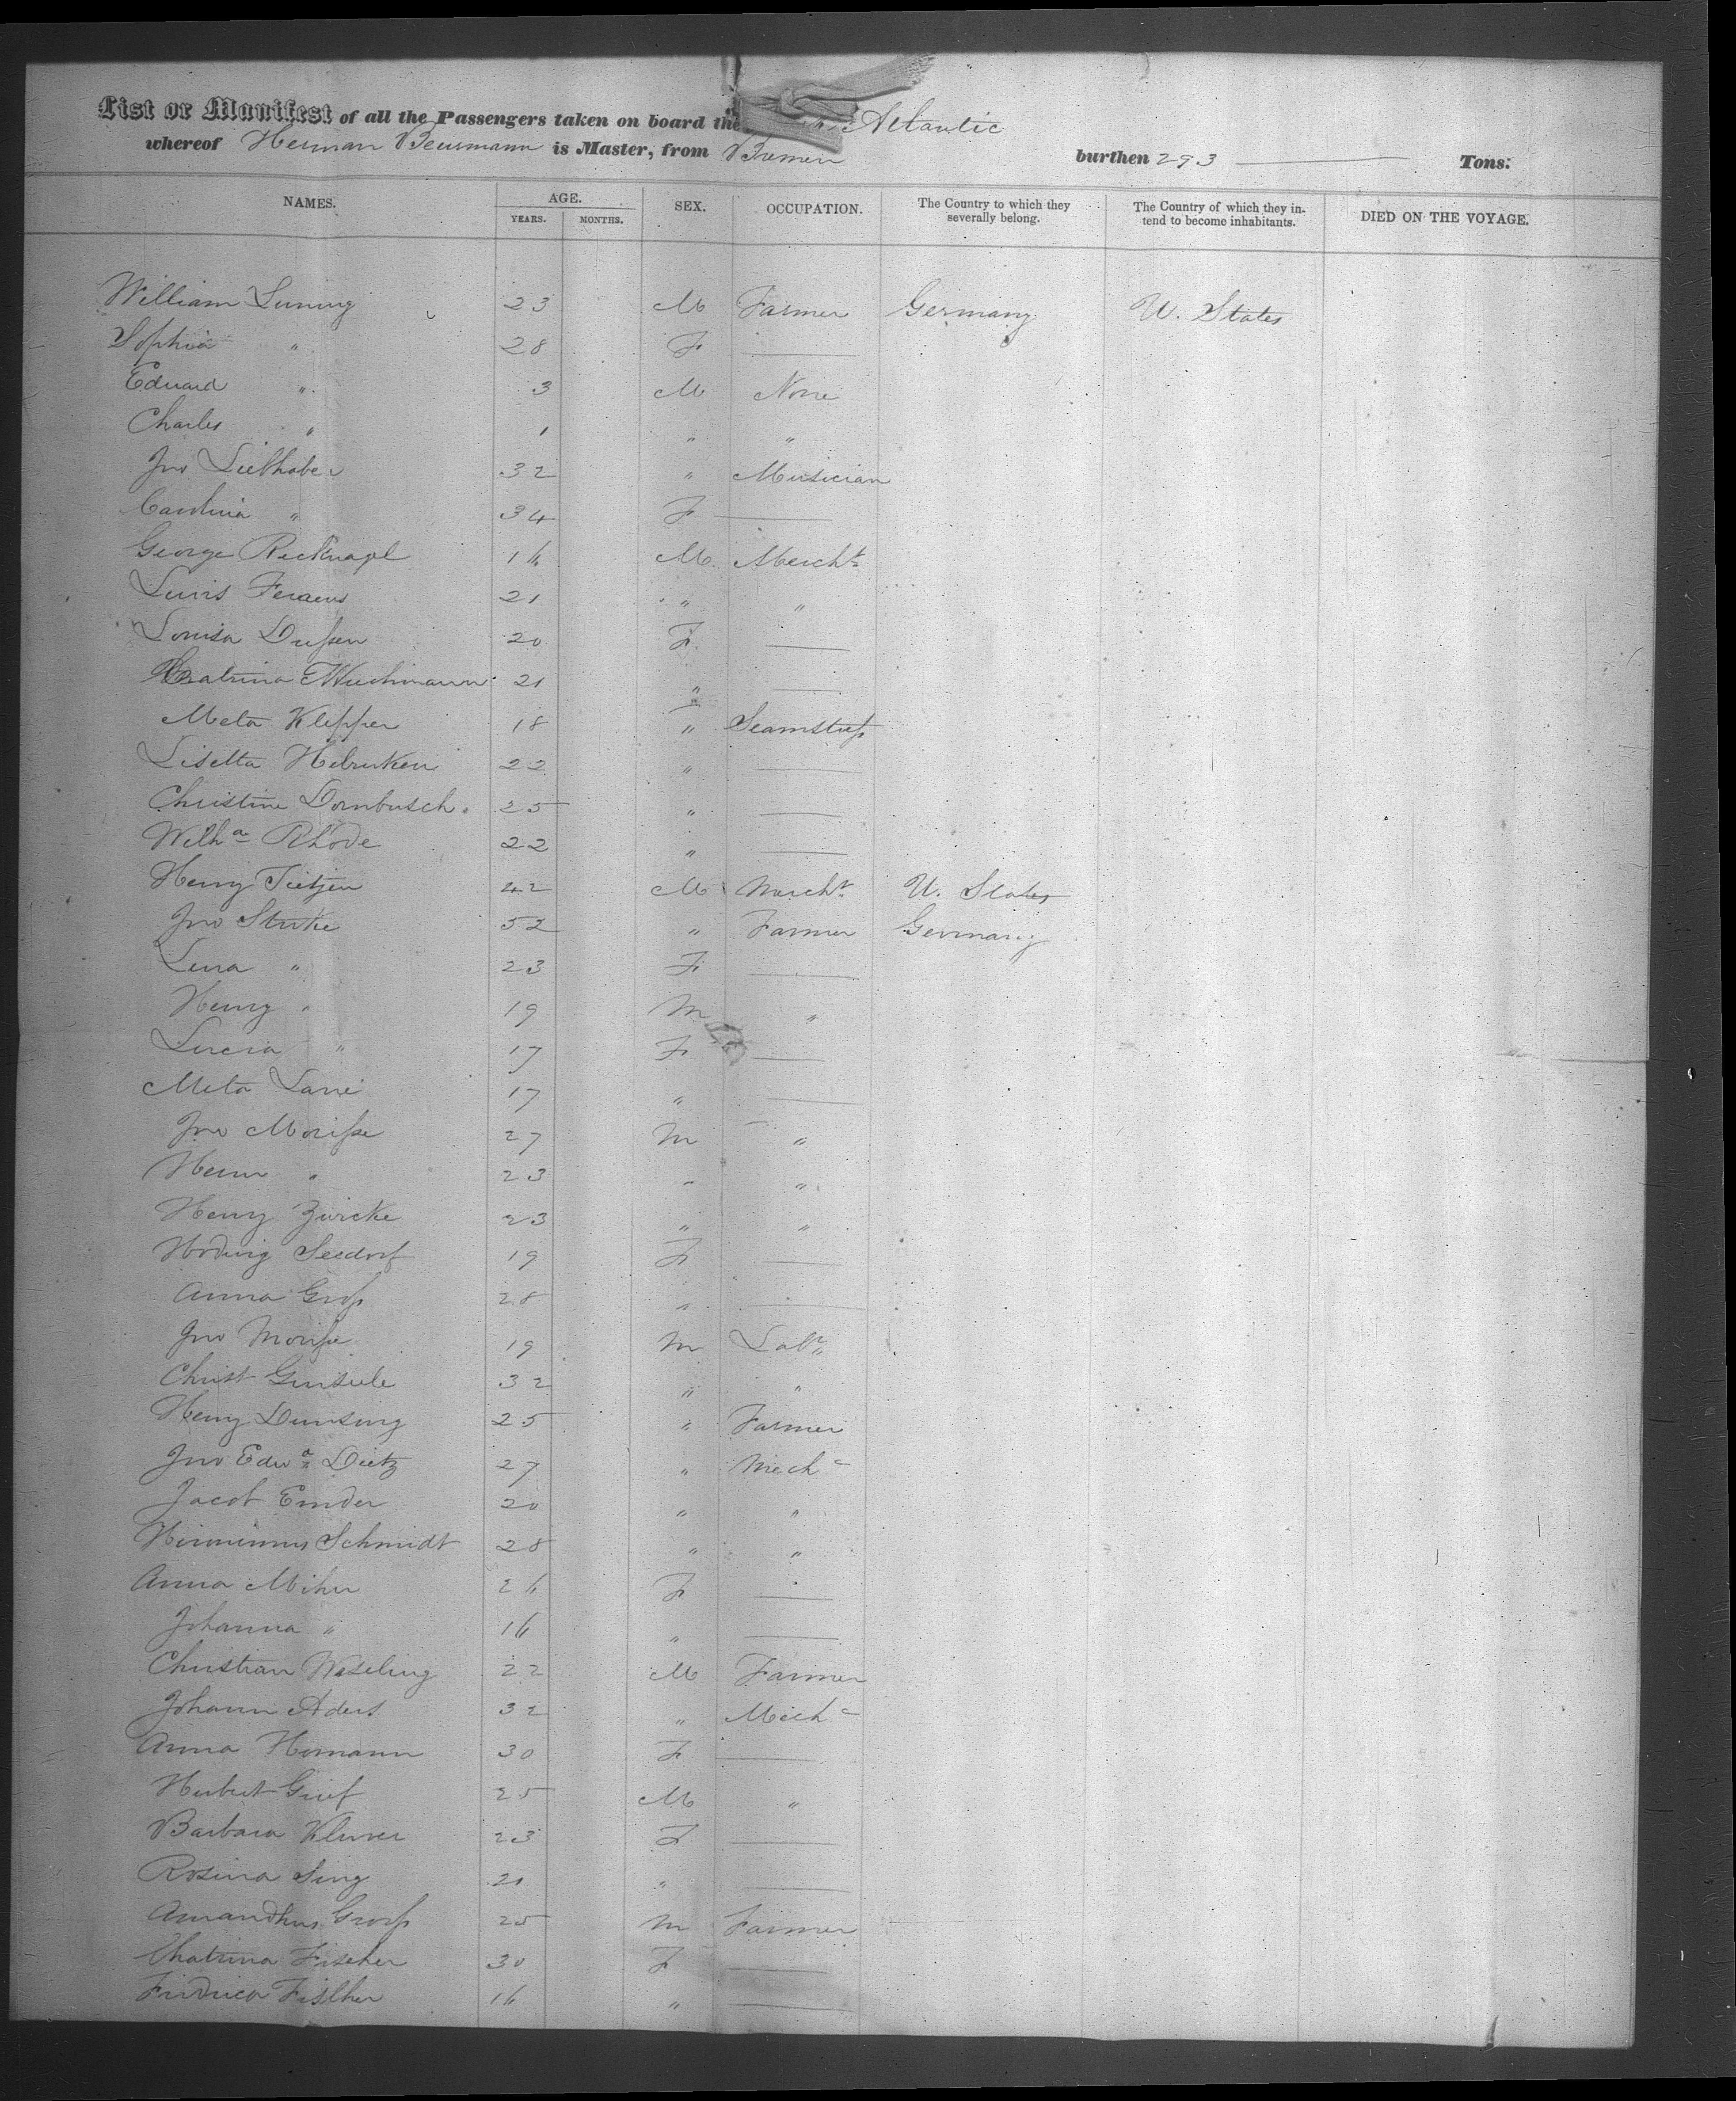 List or Manifest of all the Passengers taken on board the Atlantic
whereof Herman Beusmann is Master, from Bremen burthen 293 Tons.
NAMES. AGE. YEARS. MONTHS. SEX. OCCUPATION. The Country to which they severally belong. The Country of which they intend to become inhabitants. DIED ON THE VOYAGE.
William Luning 23 M Farmer Germany U. States
Sophia " 28 F —
Eduard " 3 M None
Charles " 1 " "
Jno Liebhaber 32 " Musician
Carolina " 34 F —
George Recknagel 16 M Mercht
Louis 21 " "
Louisa Dussen 20 F —
Catrina 21 " —
Meta Klepper 18 " Seamstress
Lisetta 22 " —
Christine Dornbusch 25 " —
Wilha Rhode 22 " —
Henry Tietjen 42 M Mercht U. States
Jno Stuke 52 " Farmer Germany
Lena " 23 F —
Henry " 19 M "
Lucia " 17 F —
Meta Lane 17 " —
Jno Morisse 27 M "
Herm " 23 " "
Henry Zuricke 23 " "
Hedwig Seedorf 19 F —
Anna Gross 28 " —
Jno Morisse 19 M Labr
Christ 32 " "
Henry Dunsing 25 " Farmer
Jno Edwa Dietz 27 " Mechc
Jacob Emder 20 " "
Hironimus Schmidt 28 " "
Anna Miher 26 F —
Johanna " 16 " —
Christian Weseling 22 M Farmer
Johann Aders 32 " Mechc
Anna Homann 30 F —
Herbert Grief 25 M "
Barbara Kluver 23 F —
Rosina Sing 21 " —
Amandhus Gross 25 M Farmer
Chatrina Fischer 30 F —
Fridrica Fischer 16 " —